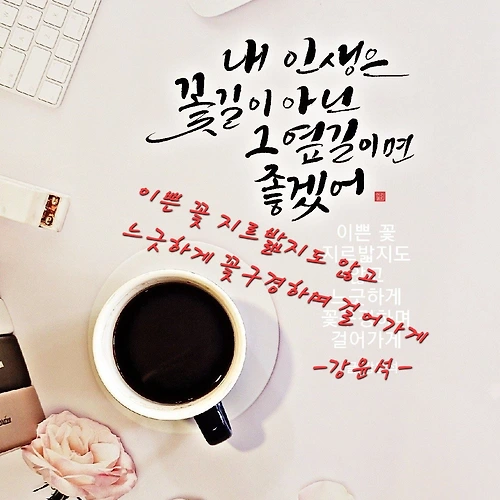 내 인생은
꽃길이 아닌
그 옆길이면
좋겠어
이쁜 꽃 지르밟지도 않고
느긋하게 꽃구경하며 걸어가게
-강윤석-
이쁜 꽃
지르밟지도
않고
느긋하게
꽃구경하며
걸어가게